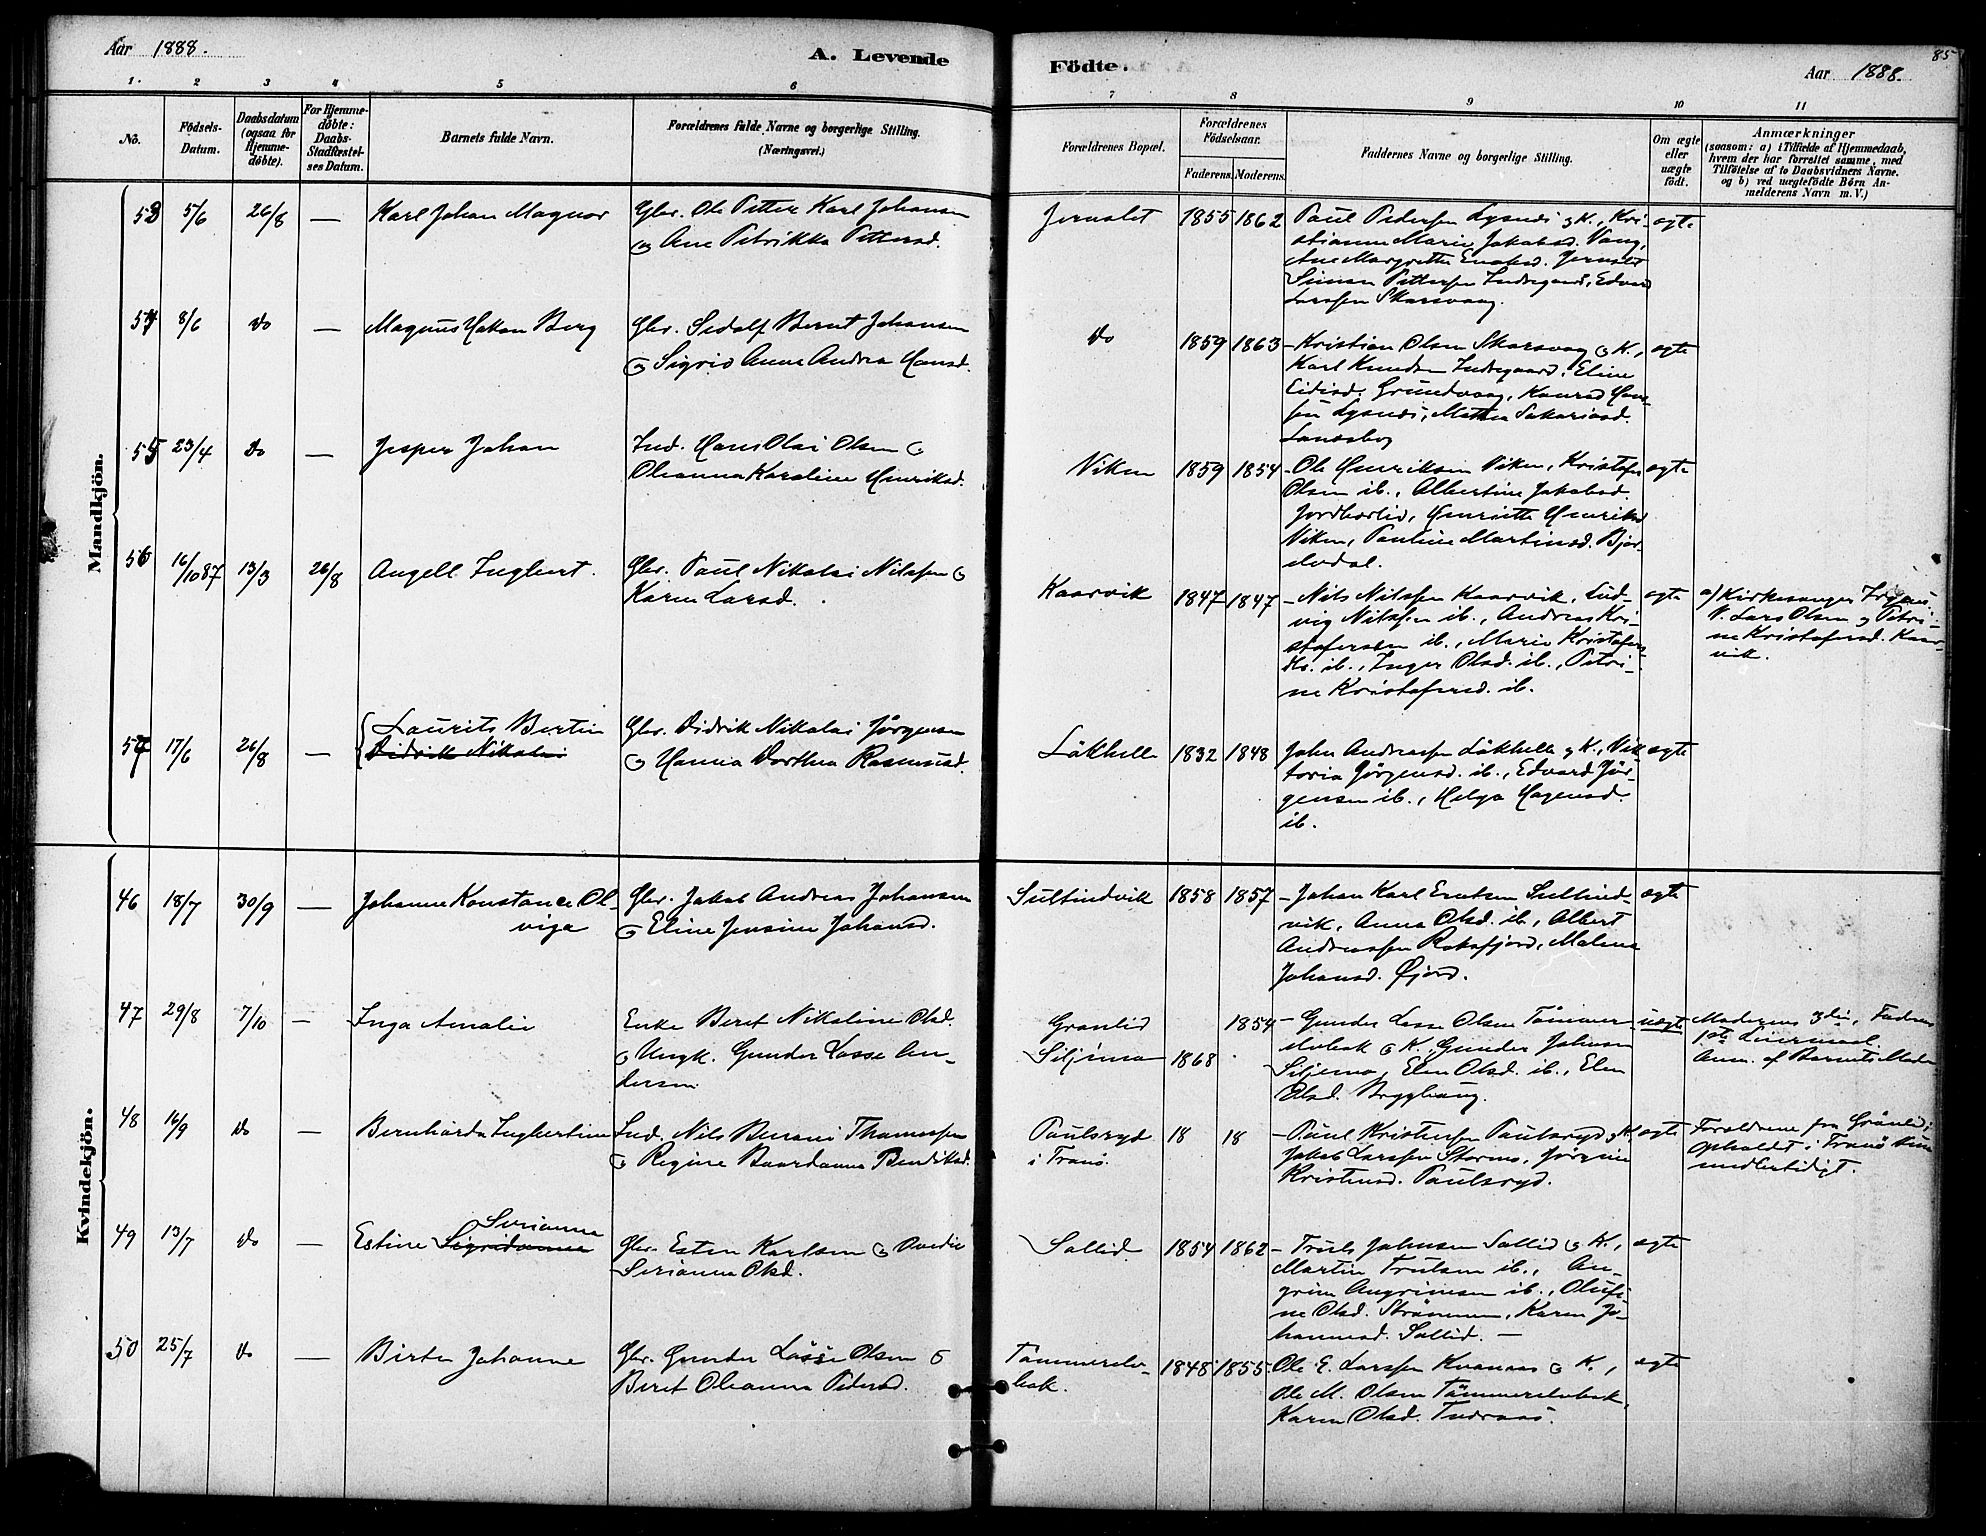 Aar 1888.
A. Levende
Födte.
85
Aar 1888.
1. 2 3 4 5 6 7 8 9 10 11
No.
Födsels-
Datum.
Daabsdatum
(ogsaa for
Hjemme-
døbte).
For Hjemme-
døbte:
Daabs-
Stadfæstel-
ses Datum.
Barnets fulde Navn.
Forældrenes fulde Navne og borgerlige Stilling.
(Næringsvei.)
Forældrenes Bopæl.
Forældrenes
Födselsaar.
Faderens. Moderens.
Faddernes Navne og borgerlige Stilling.
Om ægte
eller
uægte
født.
Anmærkninger
(saasom: a) i Tilfælde af Hjemmedaab,
hvem der har forrettet samme, med
Tilføielse af to Daabsvidners Navne.
og b) ved uægtefødte Børn An-
melderens Navn m. V.)
Mandkjön.
53 5/6 26/8 — Karl Johan Magnor
Gbr. Ole Petter Karl Johansen
og Ane Petrikka Pettersd.
Jernslet 1855 1862
Paul Pedersen Lysnes og K., Kri-
stianna Marie Jakobsd. Vang,
Ane Margrethe Enoksd. Jernslet
Simon Pettersen Indregaard, Edvard
Larssen Skarsvaag.
ægte
54 8/6 Do — Magnus Hakon Berg
Gbr. Sedolf Bernt Johansen
og Sigrid Anne Andrea Hansd.
Do 1859 1863
– Kristian Olsen Skarsvag og K.,
Karl Knudsen Indregaard, Eline
Eidisd. Grundvaag, Konrad Han-
sen Lysnes, Mathea Sakariasd.
ægte
55 23/4 Do — Jesper Johan
Ind. Hans Olai Olsen og
Oleanna Karoline Henriksd.
Viken 1859 1854
– Ole Henriksen Viken, Kristofer
Olsen ib., Albertine Jakobsd.
Jordbærlid, Henriette Henriksd
Viken, Pauline Martinsd. Bjør-
elvdal.
ægte
56 16/10 87 13/3 26/8 Angell Ingbert.
Gbr. Paul Nikolai Nilssen og
Karen Larsd.
Kaarvik 1847 1847
– Nils Nilssen Kaarvik, Lud-
vig Nilssen ib., Andreas Kri-
stofersen ib., Marie Kristofers
Kr. ib., Inger Olsd. ib., Petri-
ne Kristofersd. ib.
ægte
a) Kirkesanger
V. Lars Olsen og Petri-
ne Kristofersd. Kaar-
vik.
57 17/6 26/8 — Laurits Bertin
Didrik Nikolai
Gbr. Didrik Nikolai Jørgensen
og Hanna Dorthea Rasmusd.
Lökhelle 1832 1848
John Andreassen Lökhelle og K., Vik
toria Jørgensd. ib., Edvard Jør-
gensen ib., Helga Hagensd.
ib.
ægte
Kvindekjön.
46 18/7 30/9 — Johanne Konstance Ol-
viga
Gbr. Jakob Andreas Johansen
og Eline Jensine Johansd.
Sultindvik 1858 1857
– Johan Karl Enoksen Sultind-
vik, Anna Olsd. ib., Albert
Andreassen Roksfjord, Malena
Johansd. Øfjord.
ægte
47 29/8 7/10 — Inga Amalie
Enke Beret Nikoline Olsd.
og Ungk. Gunder Lasse An-
dersen
Grønlid 1854
Siljemo 1868
– Gunder Lasse Olsen Tömmer
elvbak og K., Gunder Johnsen
Siljemo, Elen Olsd. ib., Elen
Olsd. Bygghaug.
uægte
Moderens 3die, Faderens
1ste Leiermaal.
Anm. af Barnets Moder
48 16/9 Do — Bernharda Ingbertine
Ind. Nils Thomassen
og Regine Baardanna Bendiksd.
Paulsryd
i Tranö.
18 18
– Paul Kristensen Paulsryd og K.
Jakob Larssen Stormo, Jørgine
Kristensd. Paulsryd.
ægte
Forældrene fra Grönlid;
Opholdet i Tranö kun
midlertidigt.
49 13/7 Do — Estine Serianna
Sigridanna
Gbr. Esten Karlsen og Ovedie
Serianna Olsd.
Sollid 1854 1862
– Truls Johnsen Sollid og K.,
Martin Trulsen ib., An-
grim Angrimsen ib., Olufi-
ne Olsd. Strömmen, Karen Jo-
hannesd. Sollid. —
ægte
50 25/7 Do — Birte Johanne
Gbr. Gunder Lasse Olsen og
Beret Oleanna Pedersd.
Tömmerelv-
bak.
1848 1855.
Ole E. Larssen Kvanaas og K.,
Ole M. Olsen Tömmerelvbak,
Karen Olsd. Tudraas.
ægte